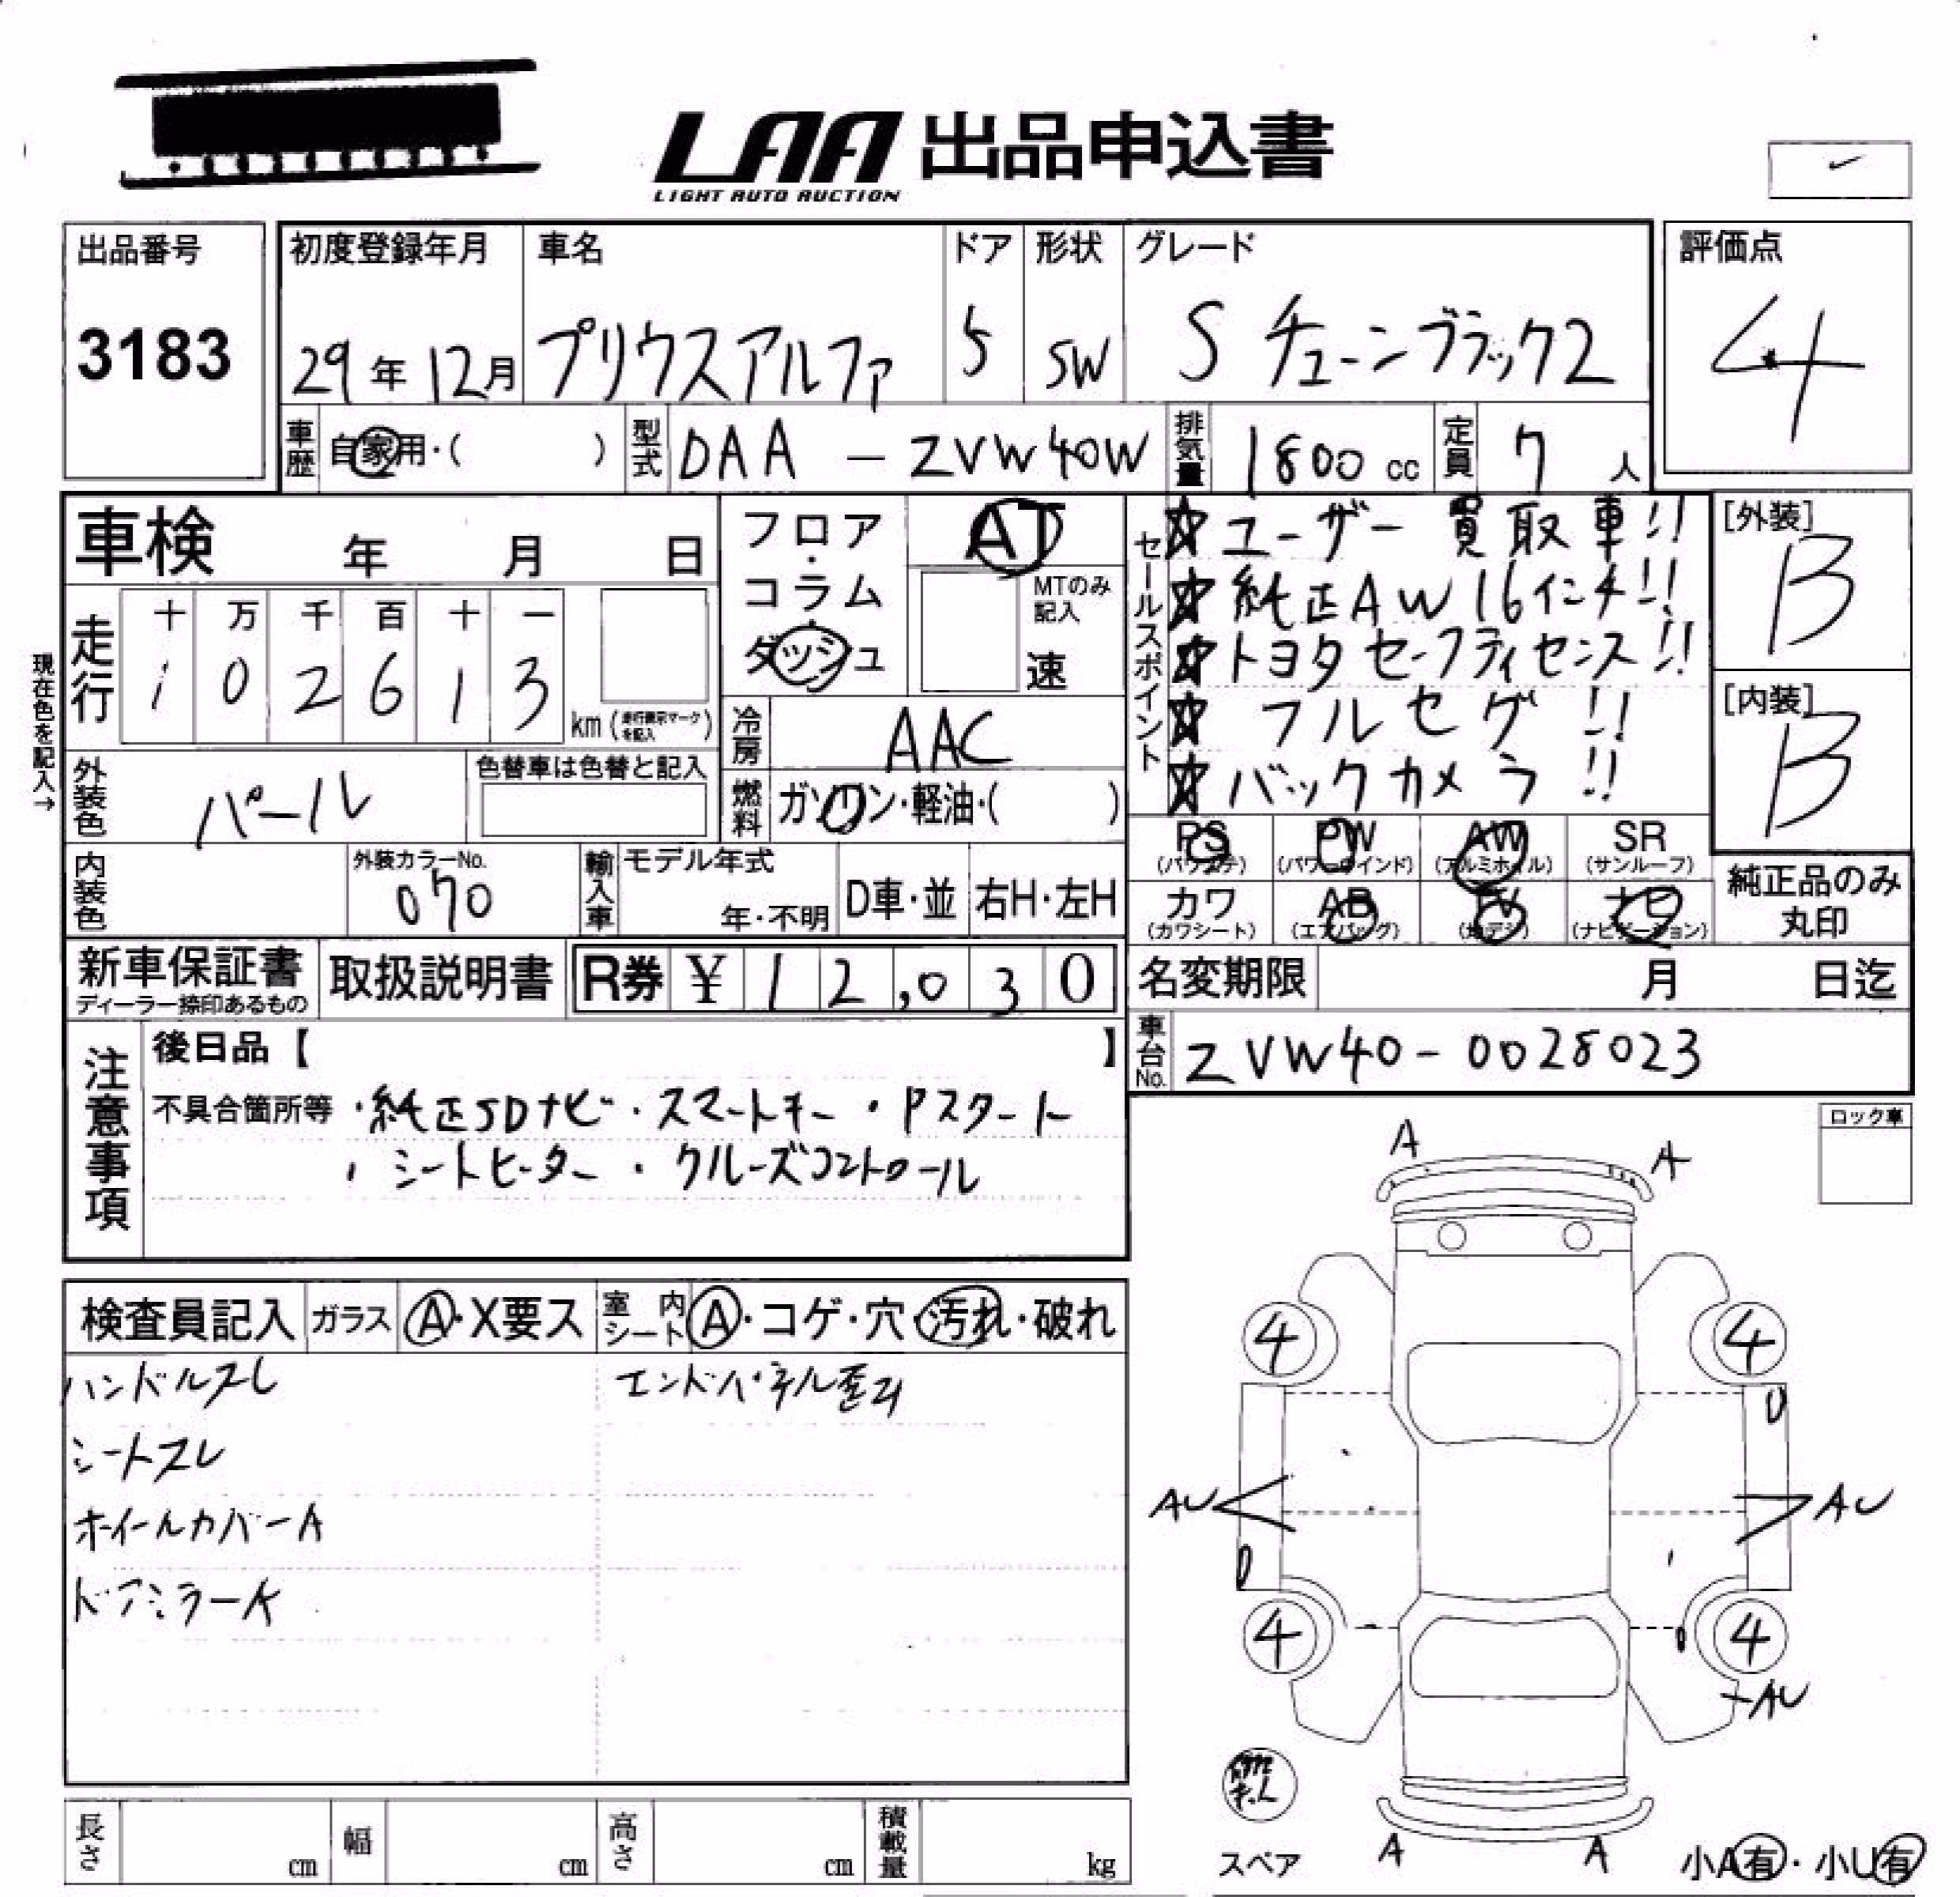 LAA 出品申込書
LIGHT AUTO AUCTION
出品番号
3183
初度登録年月
29年12月
車名
プリウスアルファ
ドア
5
形状
SW
グレード
S チューンブラック2
評価点
4
車歴 自家用・( )
型式 DAA - ZVW40W
排気量 1800 cc
定員 7 人
車検 年 月 日
フロア・コラム・ダッシュ
AT
MTのみ記入
速
セールスポイント
☆ユーザー買取車!!
☆純正AW16インチ!!
☆トヨタセーフティセンス!!
☆フルセグ!!
☆バックカメラ!!
[外装]
B
[内装]
B
現在色を記入→
走行
十 万 千 百 十 一
1 0 2 6 1 3
km (走行表示マークを記入)
冷房 AAC
外装色 パール
色替車は色替と記入
燃料 ガソリン・軽油・( )
内装色
外装カラーNo.
070
輸入車
モデル年式
年・不明
D車・並
右H・左H
PS (パワステ)
PW (パワーウインド)
AW (アルミホイル)
SR (サンルーフ)
カワ (カワシート)
AB (エアバッグ)
TV (地デジ)
ナビ (ナビゲーション)
純正品のみ
丸印
新車保証書
ディーラー捺印あるもの
取扱説明書
R券 ¥ 12,030
名変期限 月 日迄
車台No. ZVW40-0028023
注意事項
後日品【 】
不具合箇所等 ・純正SDナビ・スマートキー・Pスタート
・シートヒーター・クルーズコントロール
ロック車
検査員記入
ガラス A・X要ス
室内シート A・コゲ・穴・汚れ・破れ
ハンドルスレ
エンドパネル歪み
シートスレ
ホイールカバーA
ドアミラーA
A A
4 4
U
AU AU
U
4 4
U
AU
スペア
A A
小A有・小U有
長さ cm
幅 cm
高さ cm
積載量 kg